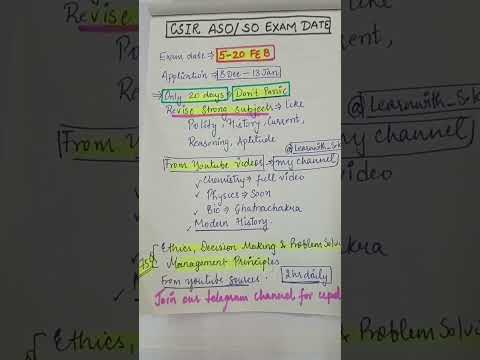 CSIR ASO/SO EXAM DATE
Exam date → 5-20 FEB
Application → 8 Dec - 13 Jan
→ Only 20 days → Don't Panic
Revise Strong subjects → like
Polity, History, Current,
Reasoning, Aptitude
@Learnwith_Sk
From Youtube videos → my channel
✓ Chemistry → full video
✓ Physics → Soon
✓ Bio → Ghatnachakra
✓ Modern History.
Ethics, Decision Making & Problem Solvi
Management Principles
From youtube sources. 2 hrs daily
Join our telegram channel for